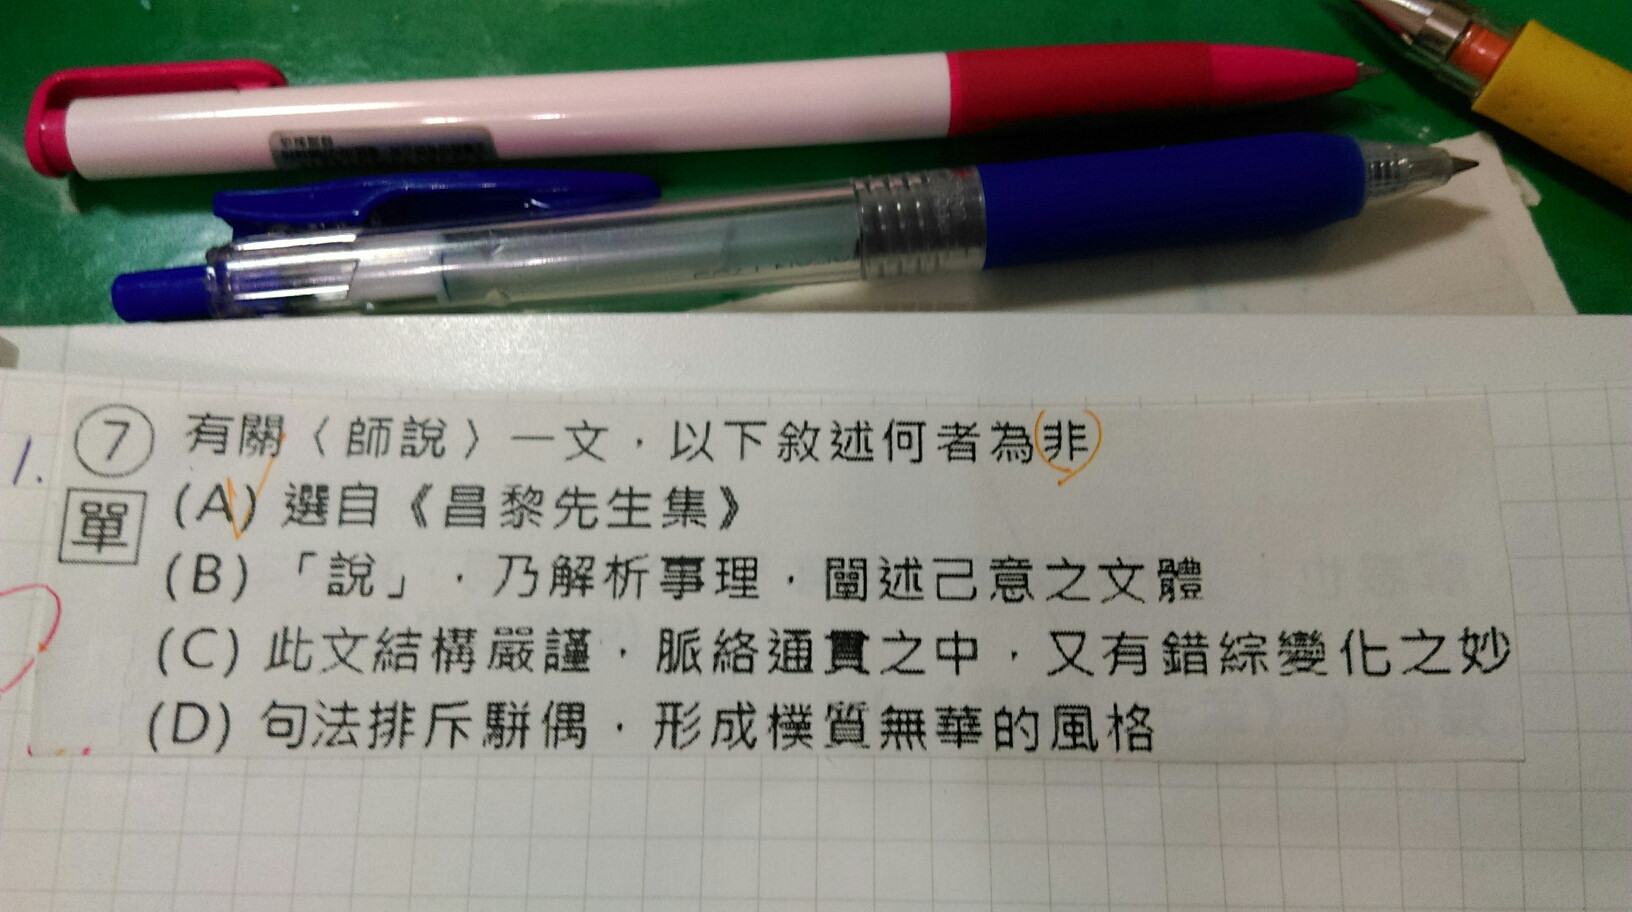 1.
⑦ 有關〈師說〉一文，以下敘述何者為非
單
(A) 選自《昌黎先生集》
(B) 「說」，乃解析事理，闡述己意之文體
(C) 此文結構嚴謹，脈絡通貫之中，又有錯綜變化之妙
(D) 句法排斥駢偶，形成樸質無華的風格